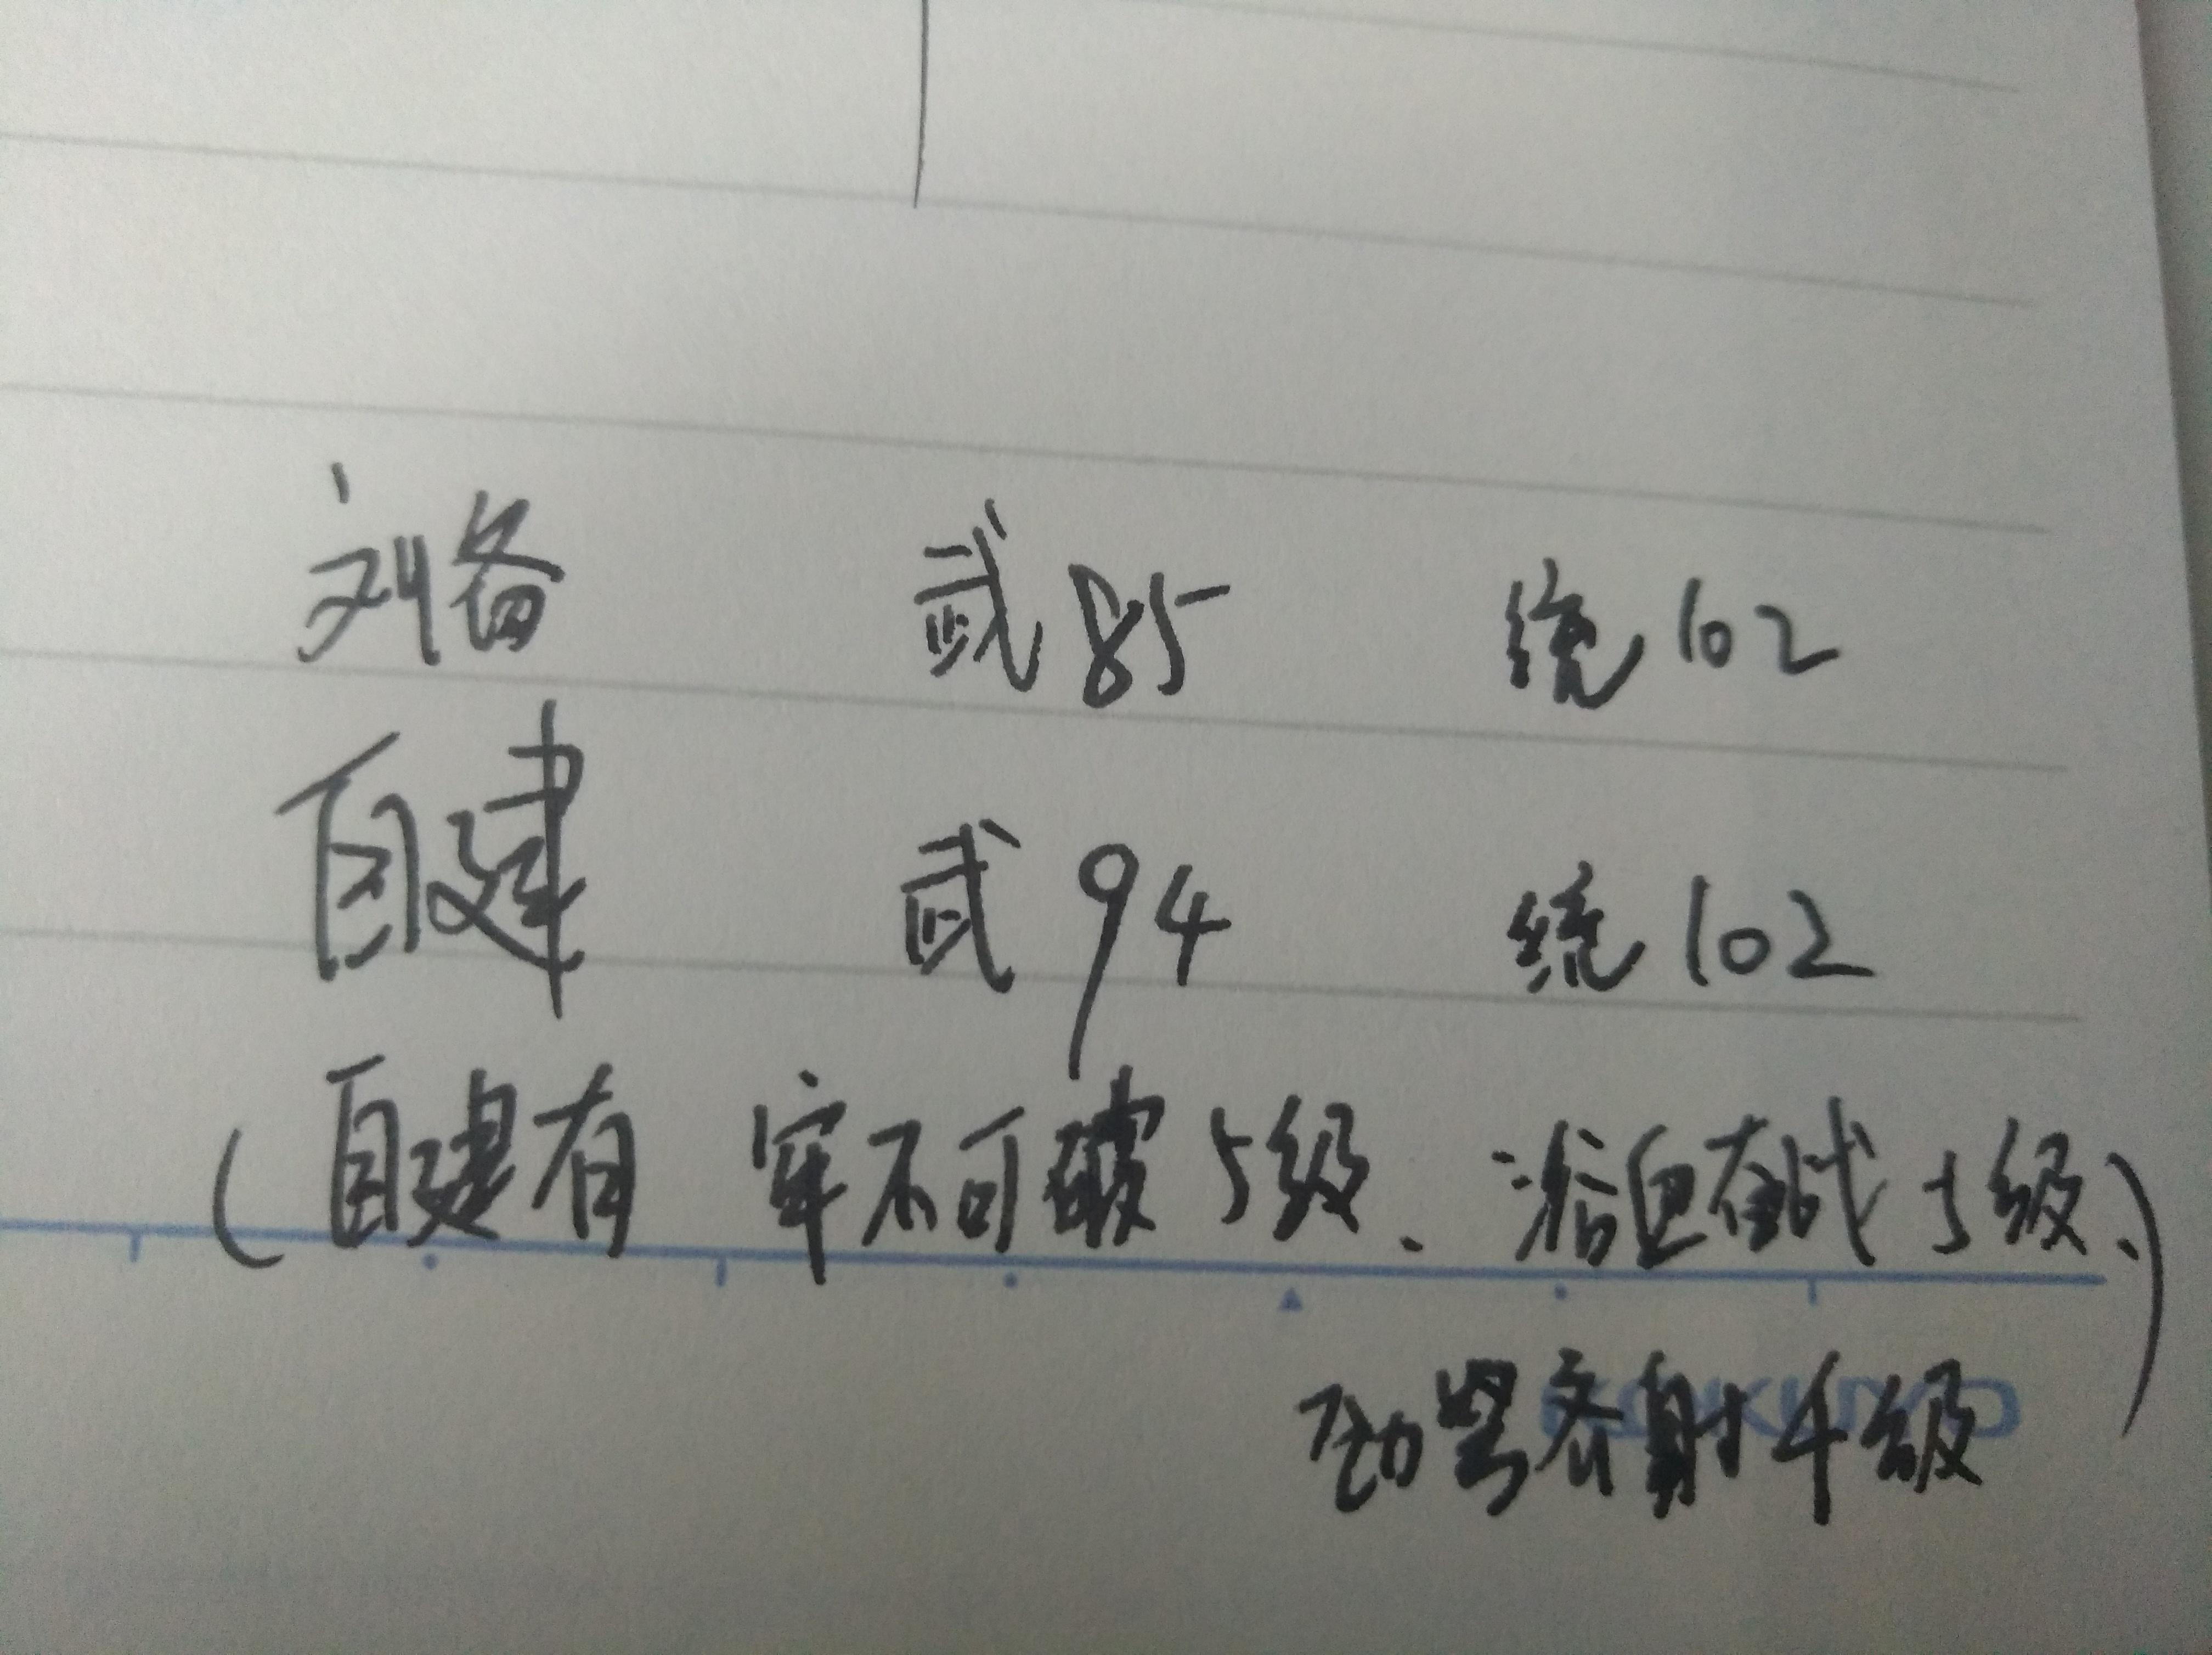 刘备 武85 统102
自建 武94 统102
(自建有 牢不可破5级、浴血奋战5级、)
劲弩齐射4级